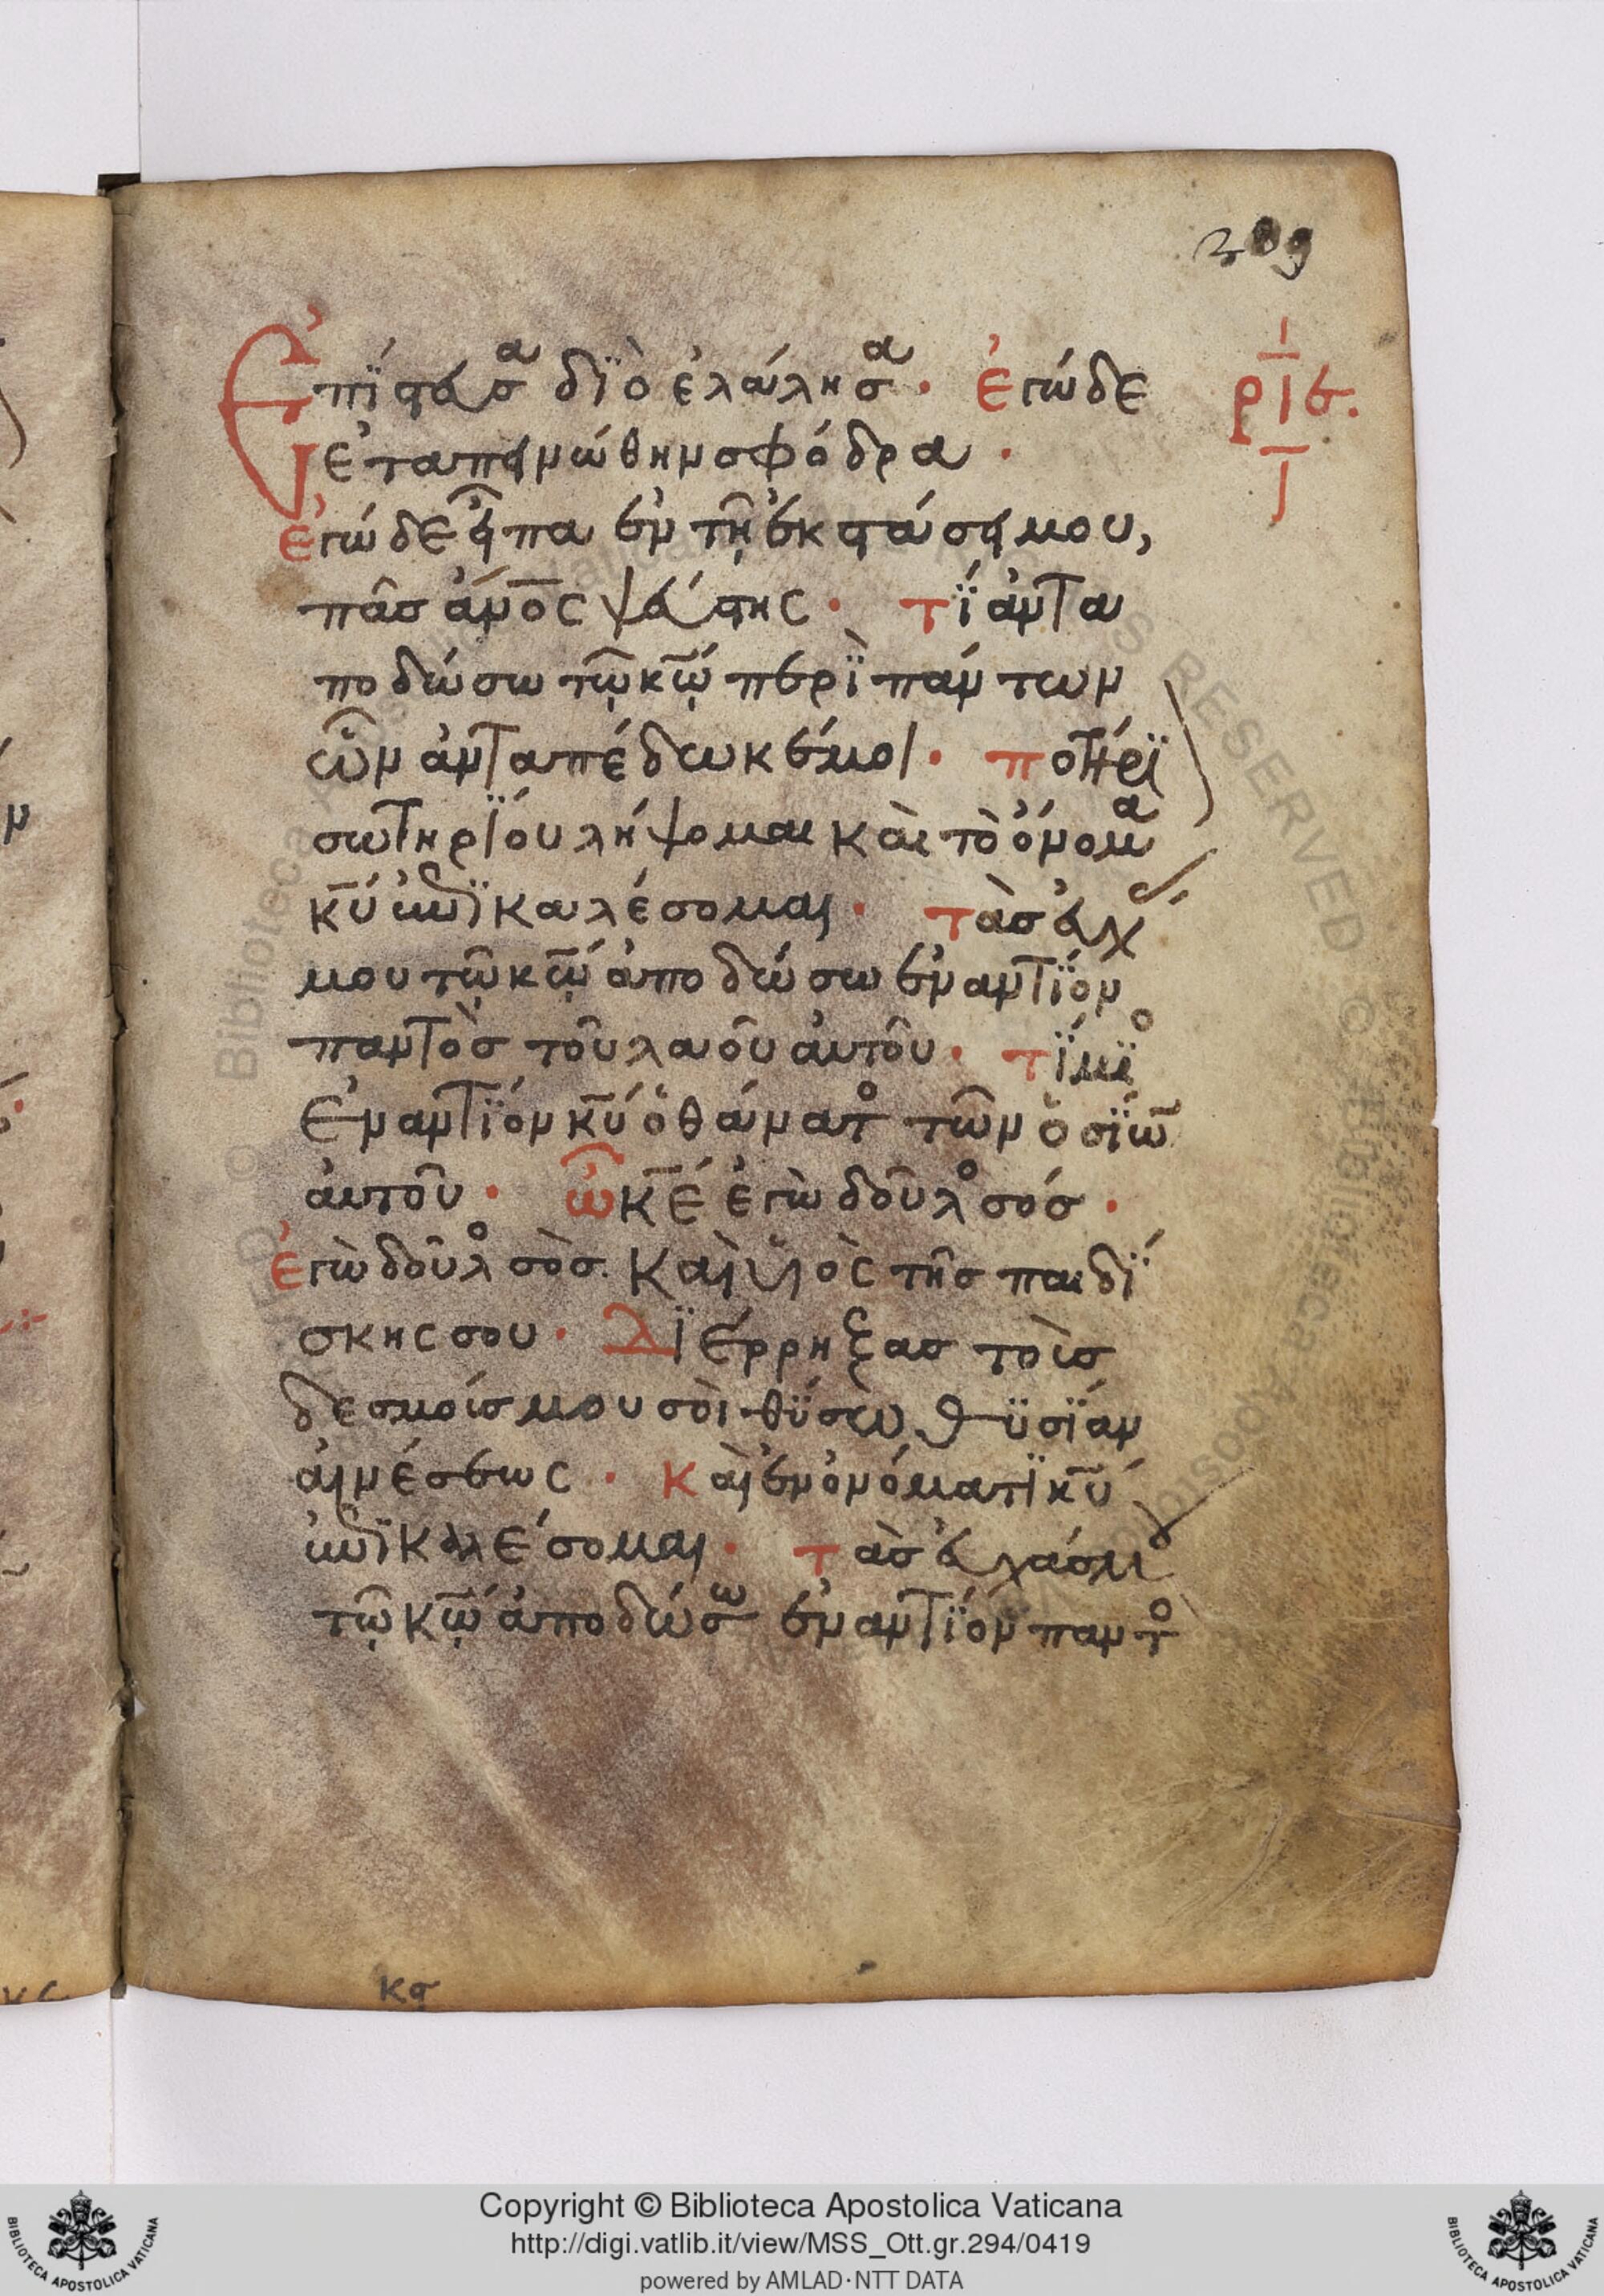 209
Ἐπίστευσα δϊὸ ἐλάλησα · ἐγώ δε
ριε.
ἐταπεινώθην σφόδρα ·
ἐγώ δε εἶπα ἐν τῆ ἐκστάσει μου,
πᾶσ ἄνο̅ς ψεύστης · τί ἀντα
ποδώσω τῶ κ̅ω̅ περὶ πάντων
ὧν ἀνταπέδωκέ μοι · ποτήρϊ
σωτηρΐου λήψομαι καὶ τὸ ὄνομα
κ̅υ̅ ἐπϊκαλέσομαι · τὰσ εὐχ
μου τῶ κ̅ω̅ ἀποδώσω ἐναντΐον
παντὸσ τοῦ λαοῦ αὐτοῦ · τΐμϊο
ἐναντΐον κ̅υ̅ ὁ θάνατο τῶν ὁσΐω̅
αὐτοῦ · ὦ κ̅ε̅ ἐγὼ δοῦλο σόσ ·
ἐγὼ δοῦλο σὸσ. καὶ υἱὸς τῆσ παιδΐ
σκης σου · Δϊέρρηξασ τοὶσ
δεσμοίσ μου σὸι θΰσω θϋσΐαν
αἰνέσεως · καὶ ἐν ὀνόματϊ κ̅υ̅
ἐπϊκαλέσομαι · τὰσ εὐχάσ μου
τῶ κ̅ω̅ ἀποδώσω ἐναντΐον παντο
Copyright © Biblioteca Apostolica Vaticana
http://digi.vatlib.it/view/MSS_Ott.gr.294/0419
powered by AMLAD·NTT DATA
BIBLIOTECA APOSTOLICA VATICANA
BIBLIOTECA APOSTOLICA VATICANA